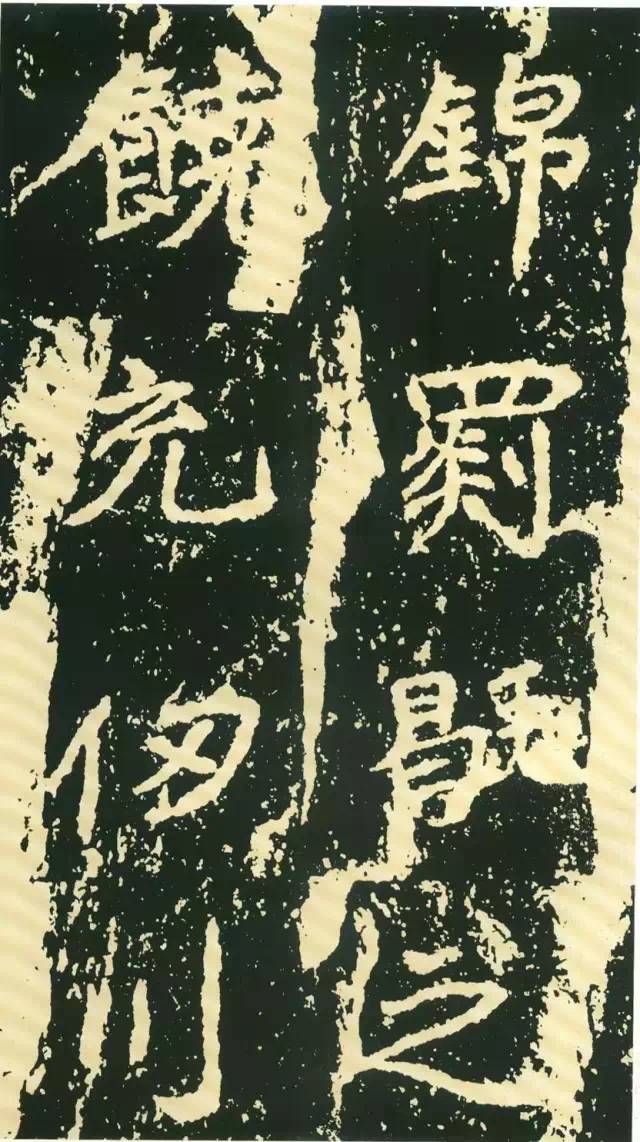 錦罽毼之
饒充仞川